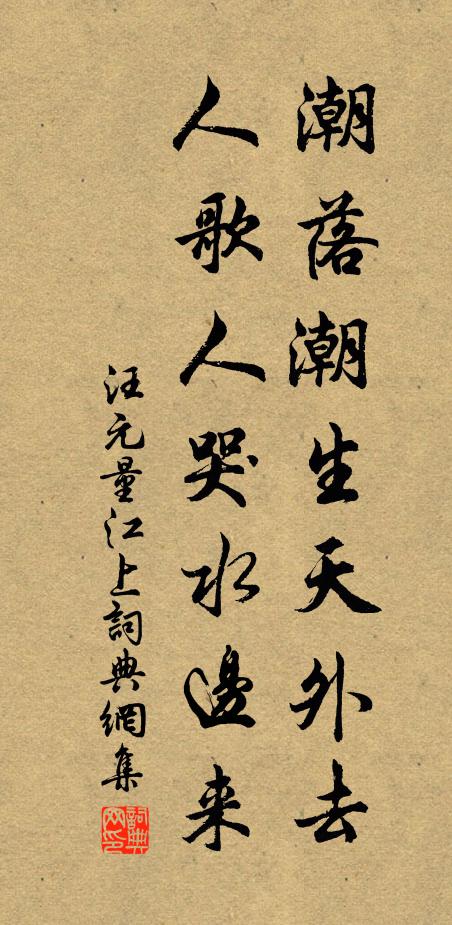 潮落潮生天外去
人歌人哭水邊来
汪元量江上詞典網集
詞典网印